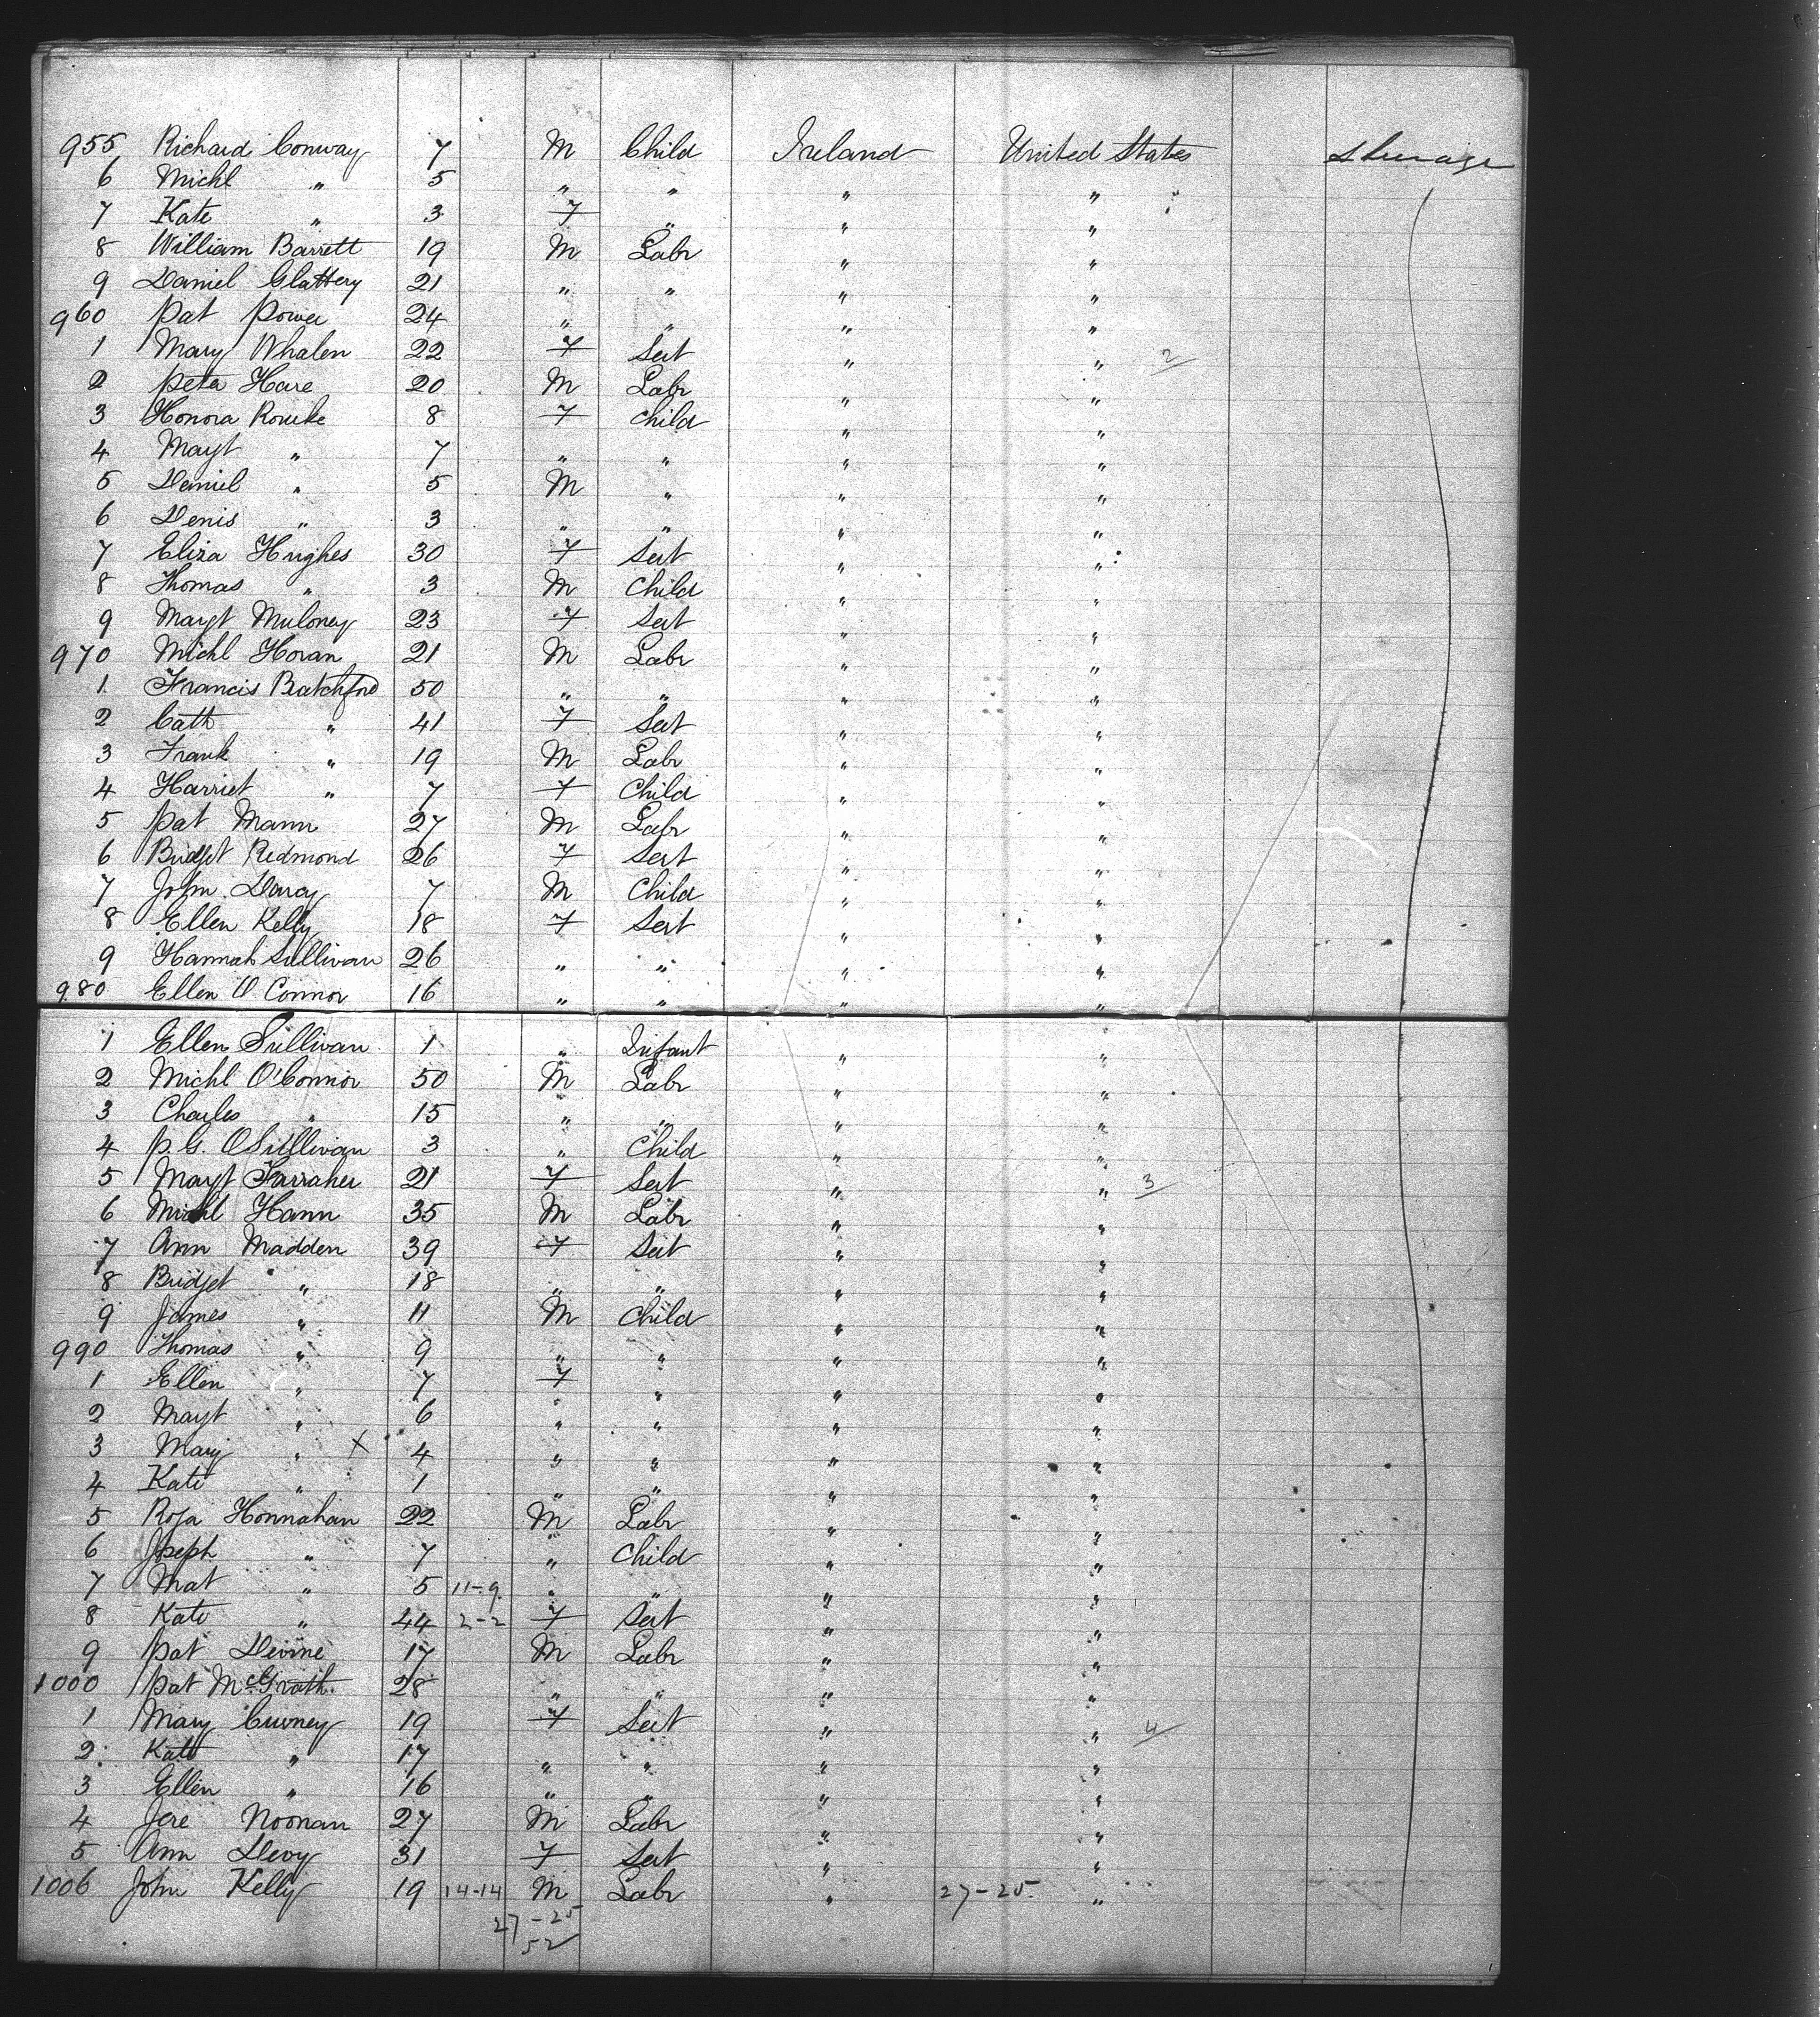 955 Richard Conway 7 M Child Ireland United States Steerage
6 Michl " 5 " " " "
7 Kate " 3 F " " "
8 William Barrett 19 M Labr " "
9 Daniel Glattery 21 " " " "
960 Pat Power 24 " " " "
1 Mary Whalen 22 F Sert " " 2
2 Peter Hare 20 M Labr " "
3 Honora Rourke 8 F Child " "
4 Magt " 7 " " " "
5 Daniel " 5 M " " "
6 Denis " 3 " " " "
7 Eliza Hughes 30 F Sert " "
8 Thomas " 3 M Child " "
9 Margt Muloney 23 F Sert " "
970 Michl Horan 21 M Labr " "
1 Francis Batchford 50 " " " "
2 Cath " 41 F Sert " "
3 Frank " 19 M Labr " "
4 Harriet " 7 F Child " "
5 Pat Mann 27 M Labr " "
6 Bridget Redmond 26 F Sert " "
7 John Darcy 7 M Child " "
8 Ellen Kelly 18 F Sert " "
9 Hannah Sullivan 26 " " " "
980 Ellen O Connor 16 " " " "
1 Ellen Sullivan 1 " Infant " "
2 Michl O'Connor 50 M Labr " "
3 Charles " 15 " " " "
4 P. G. OSullivan 3 " Child " "
5 Magt Farraher 21 F Sert " " 3
6 Michl Hann 35 M Labr " "
7 Ann Madden 39 F Sert " "
8 Bridget " 18 " " " "
9 James " 11 M Child " "
990 Thomas " 9 " " " "
1 Ellen " 7 F " " "
2 Magt " 6 " " " "
3 Mary " X 4 " " " "
4 Kate " 1 " " " "
5 Honnahan 22 M Labr " "
6 Joseph " 7 " Child " "
7 Mat " 5 11-9 " " " "
8 Kate " 44 2-2 F Sert " "
9 Pat Devine 17 M Labr " "
1000 Pat McGrath 28 " " " "
1 Mary Curney 19 F Sert " " 4
2 Kate " 17 " " " "
3 Ellen " 16 " " " "
4 Jere Noonan 27 M Labr " "
5 Ann Devy 31 F Sert " "
1006 John Kelly 19 14-14 M Labr " 27-25 "
27-25
52